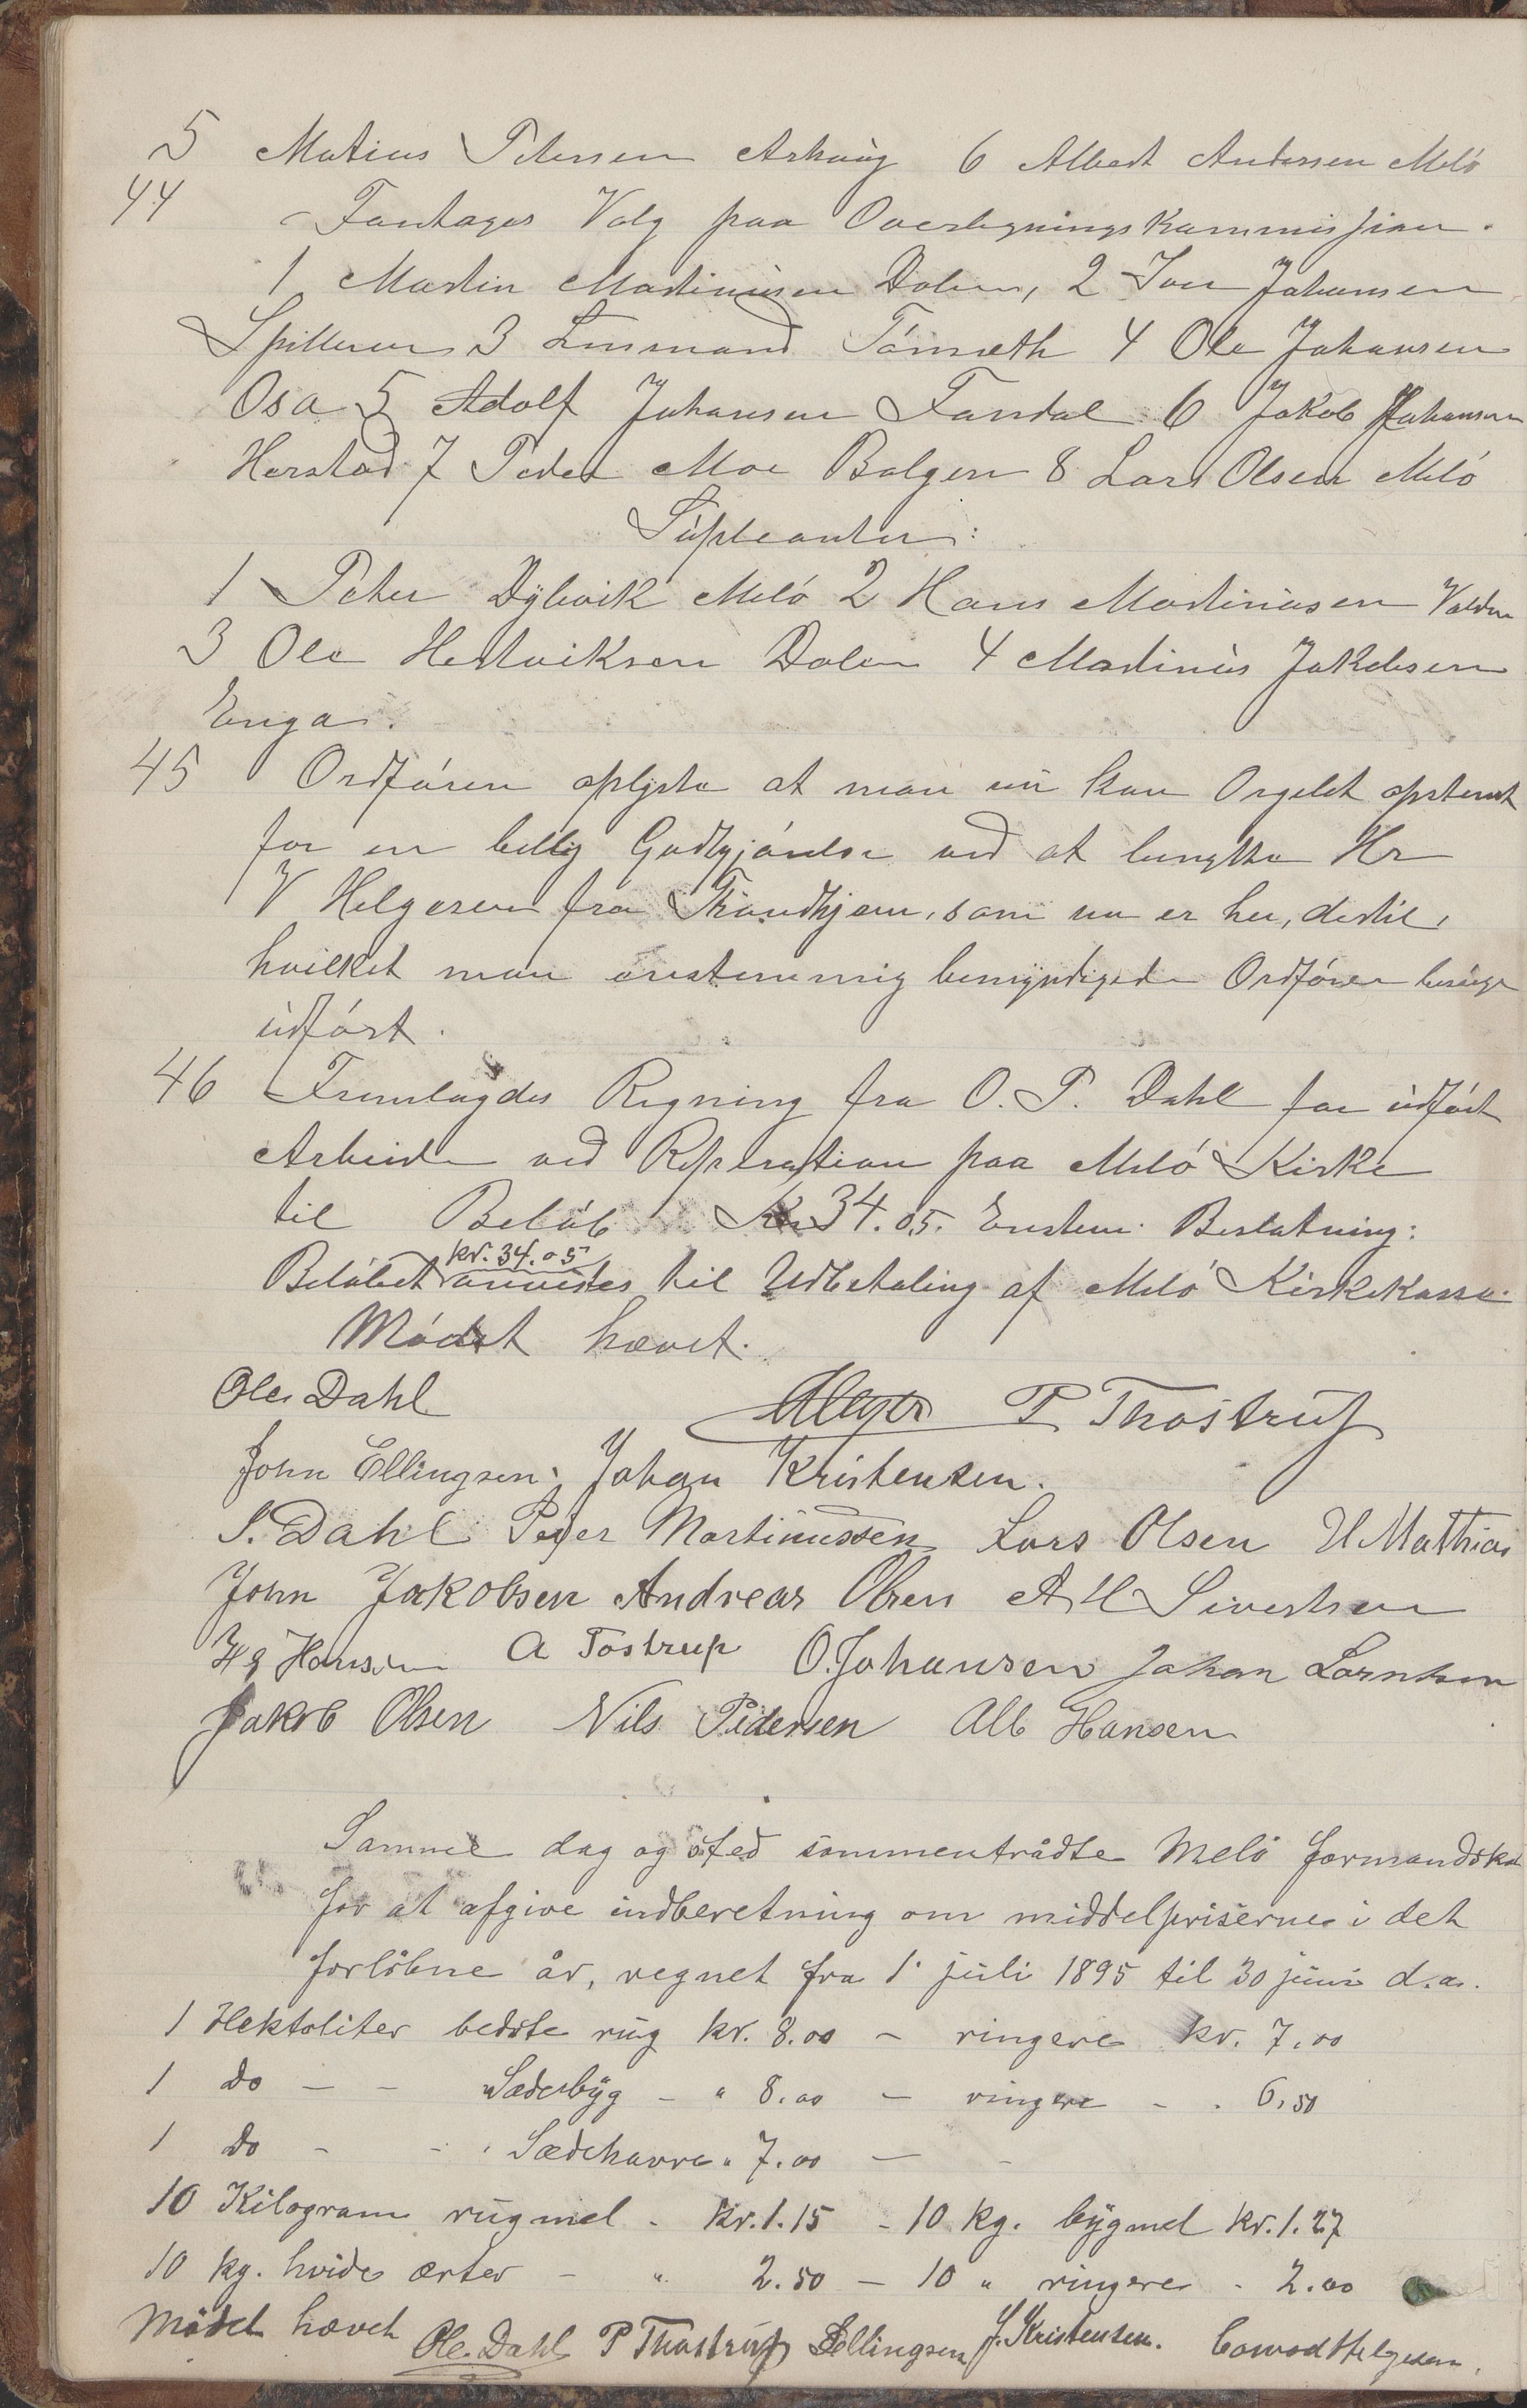 5 Matius Petersen Arhaug 6 Albert Andersen Meló
44 Foretages Valg paa Overligningskommission.
1 Martin Martinusen Dalen, 2 Jon Johansen
Spilderen 3 Lensmand Tónseth 4 Ole Johansen
Osa 5 Adolf Johansen Fondal 6 Jakob Johansen
Herstad 7 Peder Moe Bolgen 8 Lars Olsen Meló
Súpleanter:
1 Peter Dÿbvik Meló 2 Hans Martinúsen Valden
3 Ole Hertviksen Dalen 4 Martinús Jakobsen
Enga.
45 Ordfóren oplyste at man nú kan Orgelet opstemt
for en billig Godtgjórelse ved at benytte Hr
V Helgesen fra Throndhjem, som nu er her, dertil,
hvilket man enstemmig bemyndigede Ordfórer besórge
údfórt.
46 Fremlagdes Regning fra O. P. Dahl for údfórt
Arbeide ved Reperation paa Meló Kirke
til Belób Kr 34.05. Enstem. Beslutning:
Belóbet kr. 34.05 anvises til Udbetaling af Meló Kirkekasse.
Módet hævet.
Ole Dahl AMeyer P Thostrúp
John Ellingsen. Johan Kristensen.
S. Dahl Peder Martinussen Lars Olsen H Mathias
John Jakobsen Andreas Olsen A H Sivertsen
H J Hansen A Tostrup O. Johansen Johan Lorntsen
Jakob Olsen Nils Pedersen Alb Hansen
Samme dag og sted sammentrådte Melö formandska
for at afgive indberetning om middelpriserne i det
forlöbne år, regnet fra 1. júli 1895 til 30 júni d.a.
1 Hektoliter bedste rúg kr. 8.00 - ringere kr. 7.00
1 Do - - Sædebÿg - " 8.00 - ringere - . 6,50
1 Do - - Sædehavre " 7.00 - -
10 Kilogram rúgmel - kr. 1.15 - 10 kg. bÿgmel kr. 1.27
10 kg. hvide ærter - " 2.50 - 10 " ringere - 2.00
Mödet hævet Ole Dahl P Thostrúp Ellingsen J. Kristensen. Conrad Helgesen.